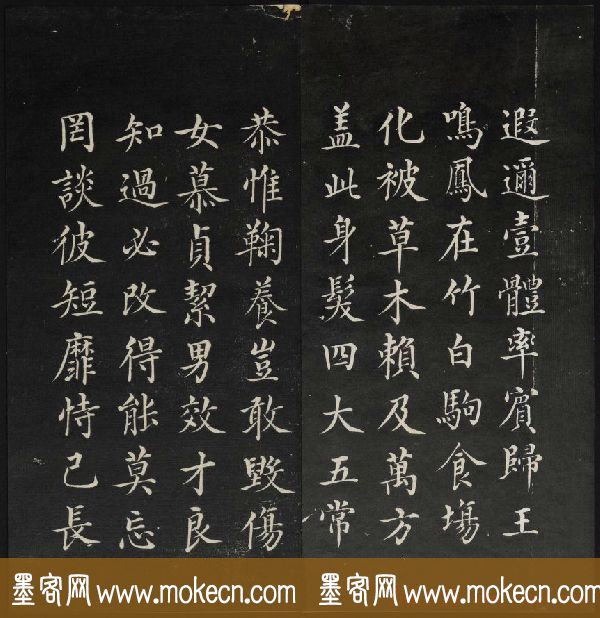 遐邇壹體率賓歸王
鳴鳳在竹白駒食場
化被草木賴及萬方
盖此身髮四大五常
恭惟鞠養豈敢毀傷
女慕貞絜男效才良
知過必改得能莫忘
罔談彼短靡恃己長
墨客网 www.mokecn.com 墨客网 www.mokecn.com